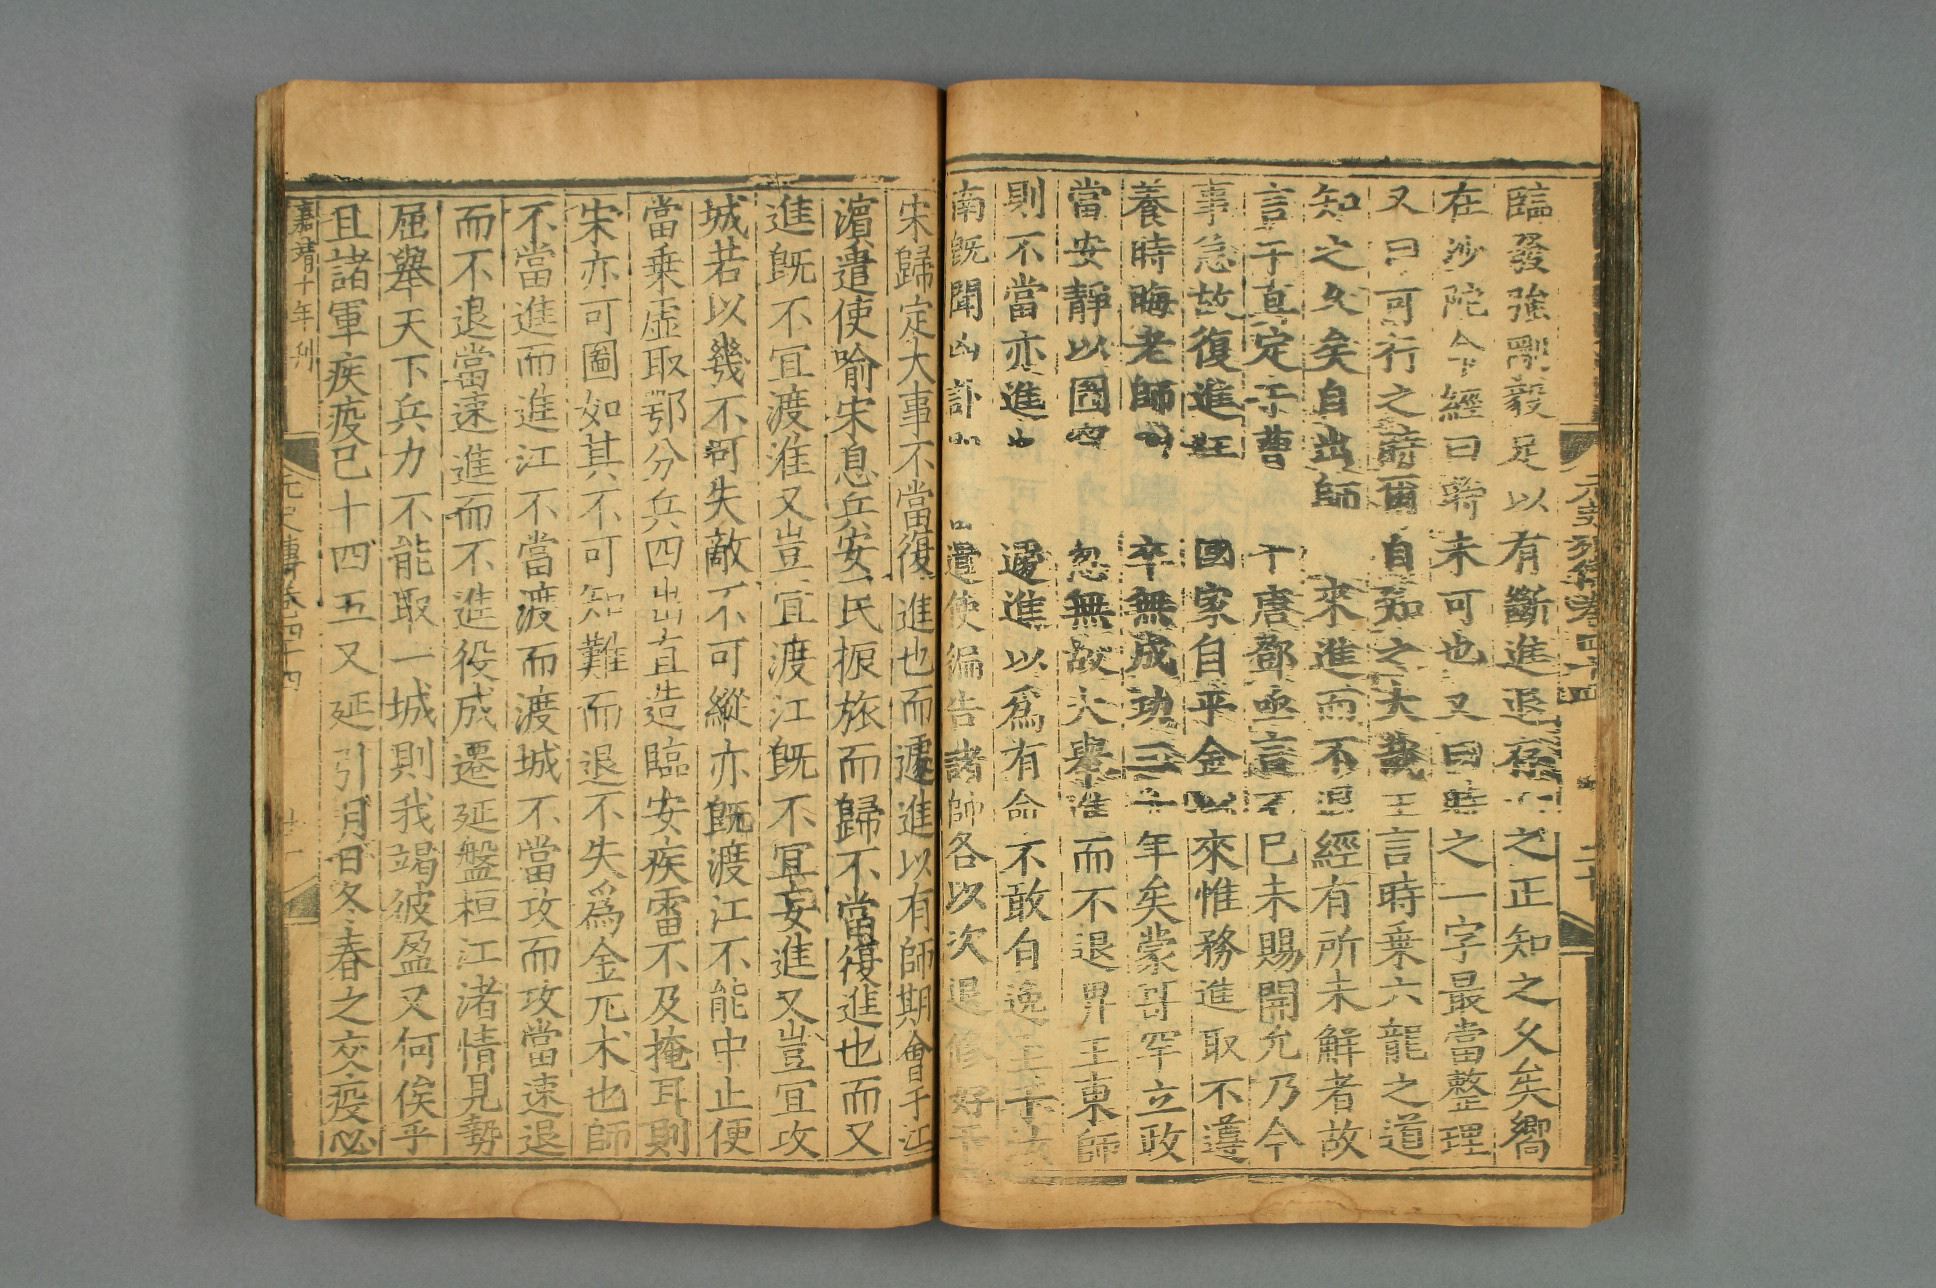 臨發強剛毅足以有斷進退存之正知之久矣嚮
在沙陀今經曰時未可也又曰時之一字最當整理
又曰可行之時爾自知之大哉王言時乗六龍之道
知之久矣自出師來進而不退經有所未解者故
言于真定于曹唐鄧亟言不已未賜開允乃今
事急故復進狂國家自平金來惟務進取不遵
養時晦老師卒無成功三十年矣蒙哥罕立政
當安靜以圖忽無故大舉進而不退畀王東師
則不當亦進遽進以爲有命不敢自逸至于汝
南旣聞凶訃遣使徧告諸帥各以次退修好于
宋歸定大事不當復進也而遽進以有師期會于江
濵遣使喻宋息兵安民振旅而歸不當復進也而又
進旣不宜渡淮又豈宜渡江旣不宜妄進又豈宜攻
城若以幾不可失敵不可縱亦旣渡江不能中止便
當乗虛取鄂分兵四出直造臨安疾雷不及掩耳則
宋亦可圖如其不可知難而退不失爲金兀术也師
不當進而進江不當渡而渡城不當攻而攻當速退
而不退當速進而不進役成遷延盤桓江渚情見勢
屈舉天下兵力不能取一城則我竭彼盈又何俟乎
且諸軍疾疫已十四五又延引月日冬春之交疫必
嘉靖十年刊
元史傳卷四十四
廿一